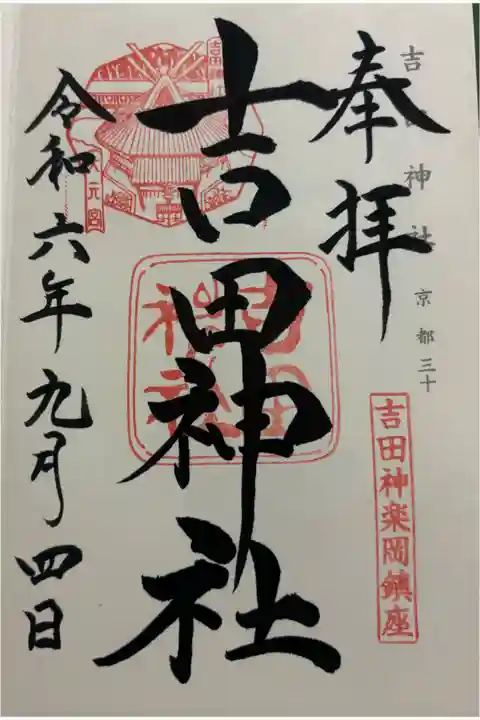 吉田神社 京都三十
奉拝
吉田神楽岡鎮座
吉田神社
吉田神社
大元宮
令和六年九月四日